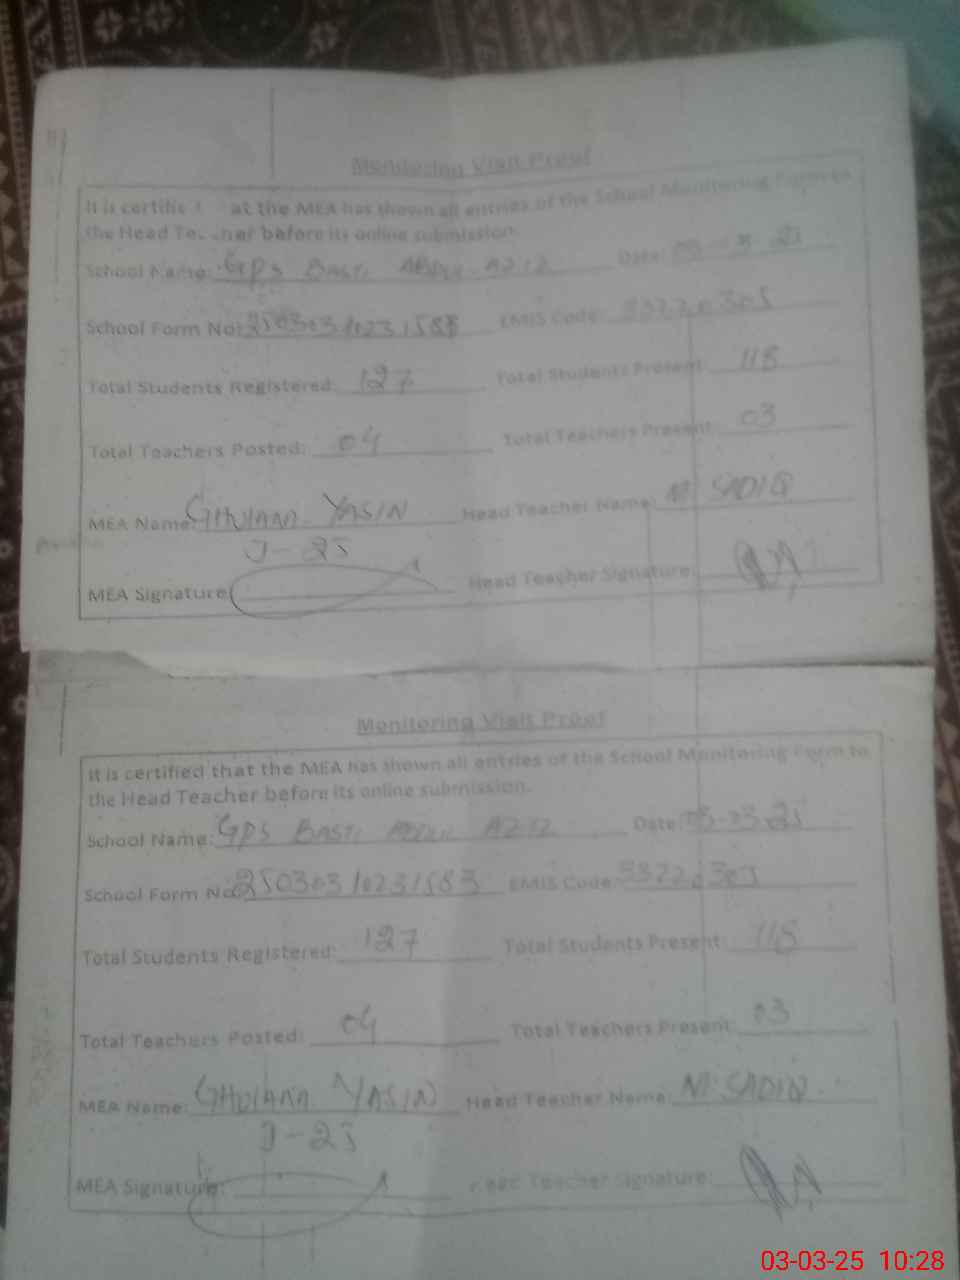 Monitoring Visit Proof
It is certified at the MEA has shown all entries of the School Monitoring Form to
the Head Teacher before its online submission.
School Name: GPS BASTI ABDUL AZIZ Date: 03-
School Form No: 2503031023158 EMIS Code: 33220305
Total Students Registered: 127 Total Students Present: 118
Total Teachers Posted: 04 Total Teachers Present: 03
MEA Name: GHULAM YASIN Head Teacher Name: M. SADIQ
J-25
MEA Signature: Head Teacher Signature:
Monitoring Visit Proof
It is certified that the MEA has shown all entries of the School Monitoring Form to
the Head Teacher before its online submission.
School Name: GPS BASTI ABDUL AZIZ Date: 03-03-25
School Form No 25030310231583 EMIS Code: 33220305
Total Students Registered: 127 Total Students Present: 118
Total Teachers Posted: 04 Total Teachers Present: 03
MEA Name: GHULAM YASIN Head Teacher Name: M. SADIQ
J-25
MEA Signature: Head Teacher Signature:
03-03-25 10:28